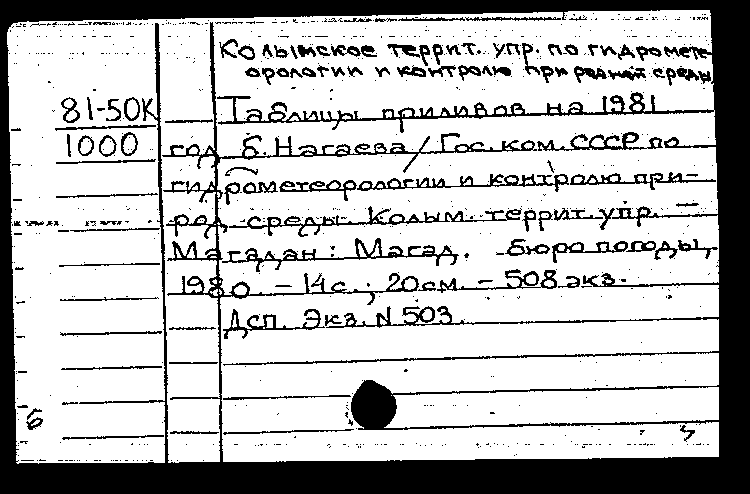 Колымское террит. упр. по гидромете-
орологии и контролю природной среды
81-50К Таблицы приливов на 1981
1000 год б. Нагаева / Гос. ком. СССР по
гидрометеорологии и контролю при-
род. среды. Колым. террит. упр. —
Магадан: Магад. бюро погоды,
1980. - 14 с.; 20 см. - 508 экз.
Дсп. Экз. N 503.
б